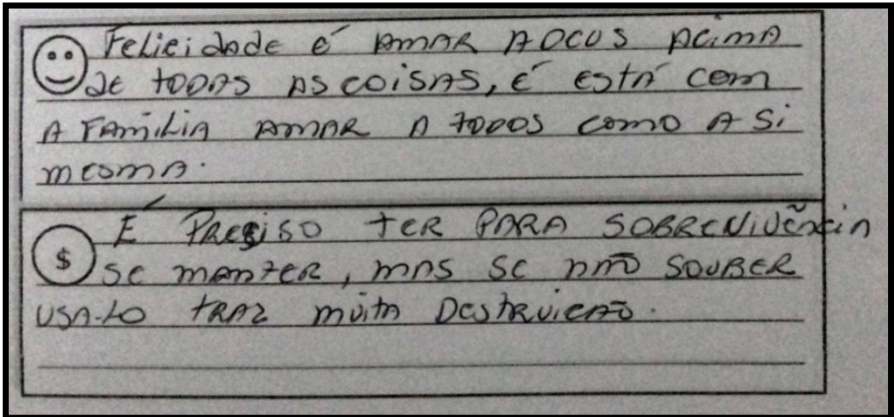 Felicidade é AMAR A DEUS ACIMA
de TODAS AS COISAS, é está com
A FAMILIA AMAR A TODOS COMO A SI
MESMA.
É PRECISO TER PARA SOBREVIVÊNCIA
$ SE MANTER, MAS SE NÃO SOUBER
USA-LO TRAZ MUITA DESTRUIÇÃO.